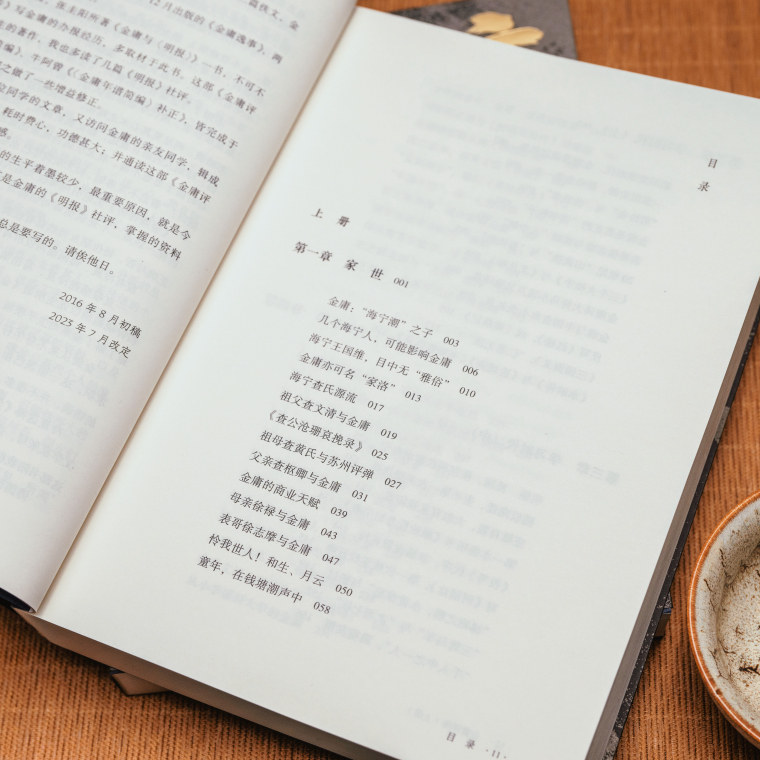 篇佚文，金
12月出版的《金庸逸事》，两
张圭阳所著《金庸与〈明报〉》一书，不可不
》写金庸的办报经历，多取材于此书。这部《金庸评
生的著作，我也多读了几篇《明报》社评。
编》、牛阿曾《〈金庸年谱简编〉补正》，皆完成于
之做了一些增益修正。
位同学的文章，又访问金庸的亲友同学，辑成
，耗时费心，功德甚大；并通读这部《金庸评
感。
的生平着墨较少，最重要原因，就是今
是金庸的《明报》社评，掌握的资料
总是要写的。请俟他日。
2016 年 8 月初稿
2025 年 7 月改定
目录
上 册
第一章 家 世 001
金庸：“海宁潮”之子 003
几个海宁人，可能影响金庸 006
海宁王国维，目中无“雅俗” 010
金庸亦可名“家洛” 013
海宁查氏源流 017
祖父查文清与金庸 019
《查公沧珊哀挽录》 025
祖母查黄氏与苏州评弹 027
父亲查枢卿与金庸 031
金庸的商业天赋 039
母亲徐禄与金庸 043
表哥徐志摩与金庸 047
怜我世人！和生、月云 050
童年，在钱塘潮声中 058
目 录 · 11 ·